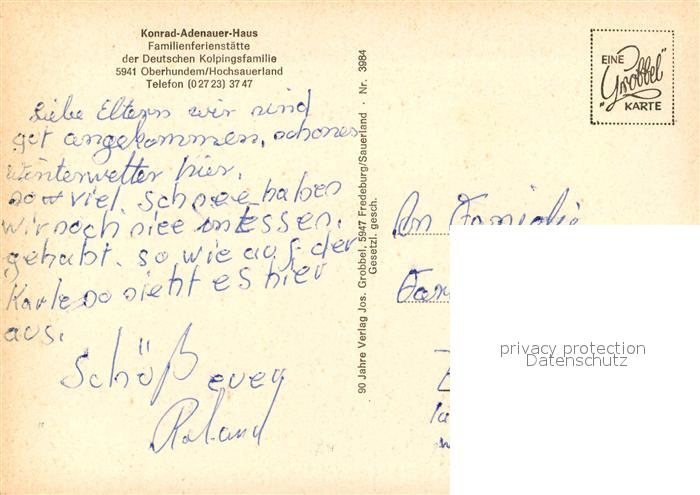 Konrad-Adenauer-Haus
Familienferienstätte
der Deutschen Kolpingsfamilie
5941 Oberhundem/Hochsauerland
Telefon (0 27 23) 37 47
Liebe Eltern wir sind
gut angekommen, schönes
Winterwetter hier.
so viel schnee haben
wir noch niee in essen.
gehabt. so wie auf der
Karte so sieht es hier
aus.
Schöß euer
Roland
90 Jahre Verlag Jos. Grobbel, 5947 Fredeburg/Sauerland · Nr. 3984
Gesetzl. gesch.
EINE
"Grobbel"
KARTE
An Familie
privacy protection
Datenschutz